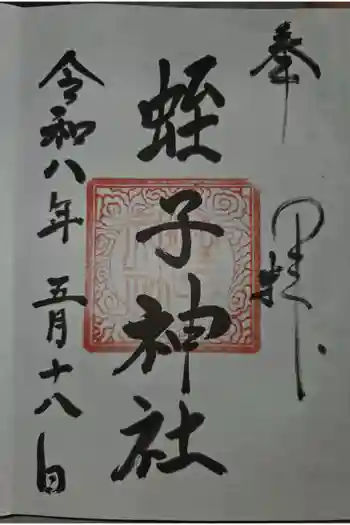 奉拝
蛭子神社
令和八年五月十八日